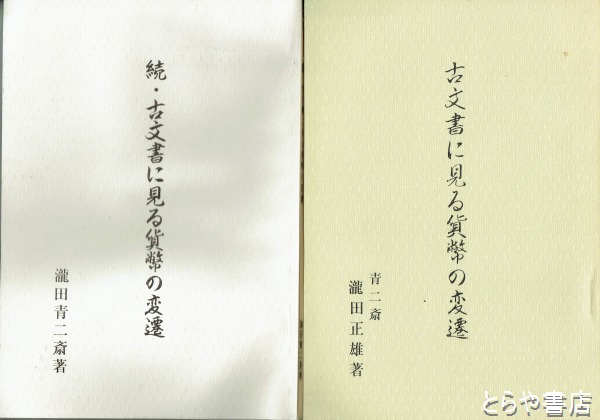 古文書に見る貨幣の変遷
青二斎
瀧田正雄著
続・古文書に見る貨幣の変遷
瀧田青二斎著
とらや書店